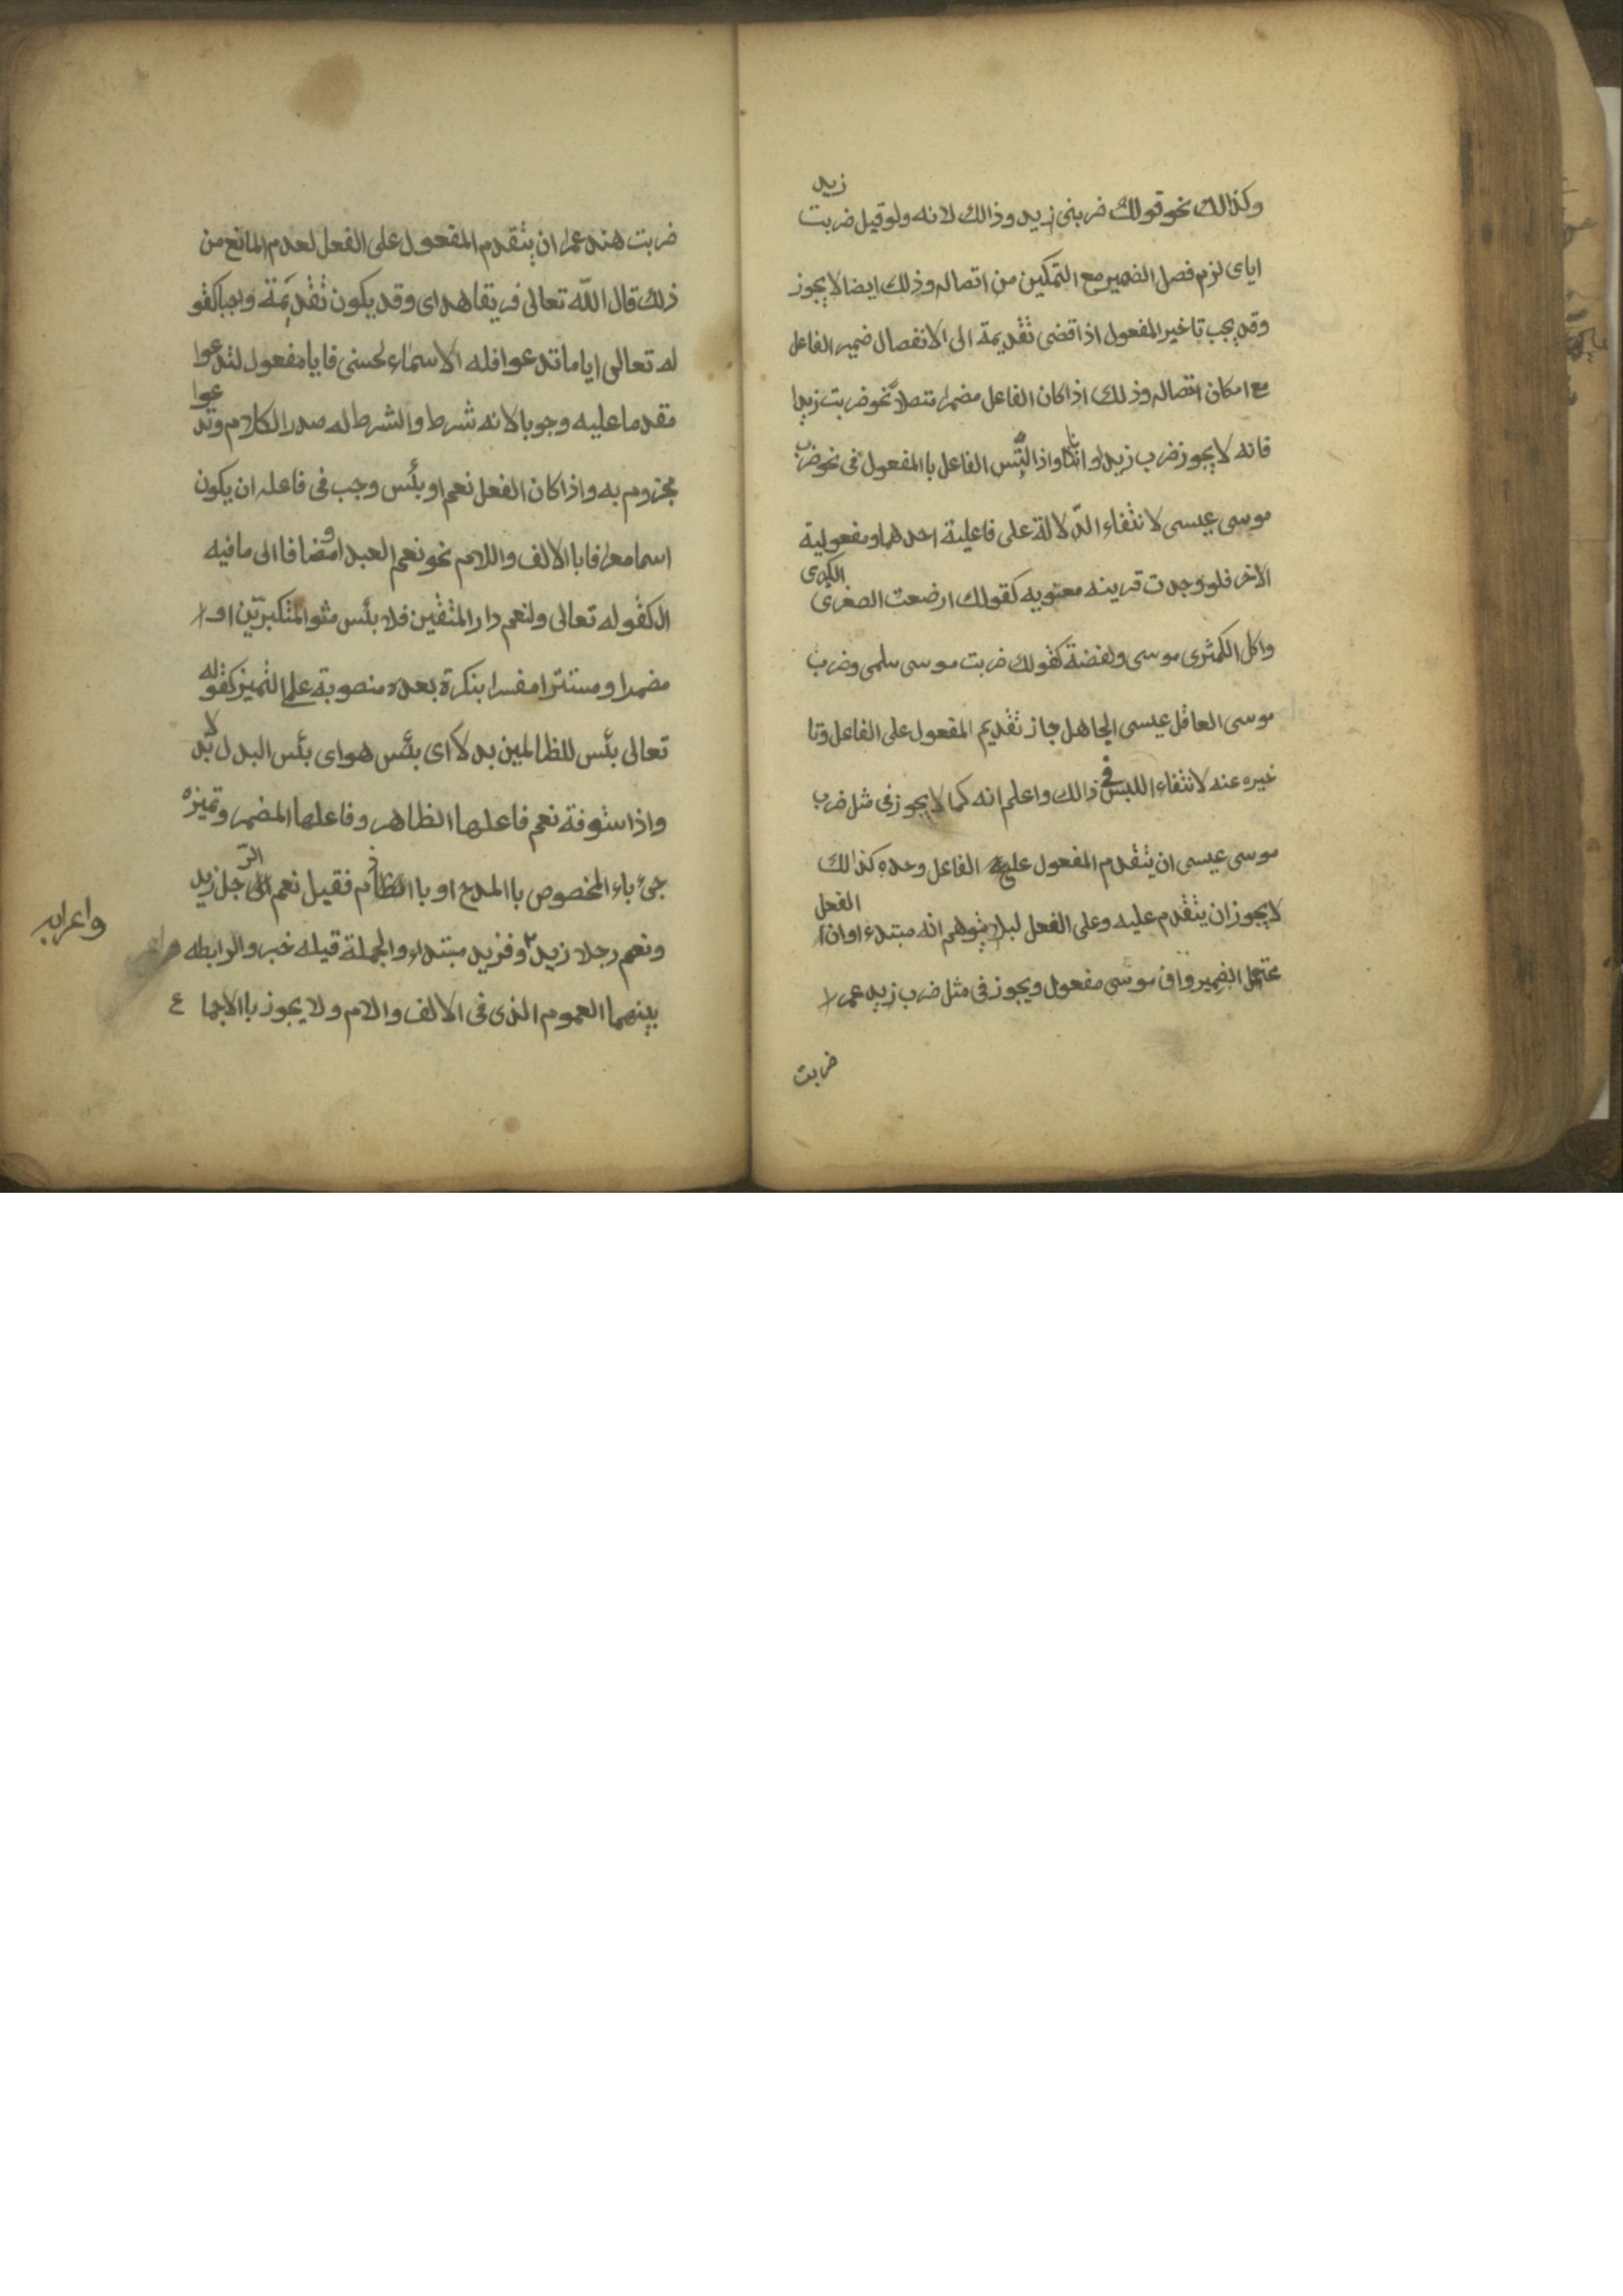 وكذالك نحو قولك ضربنى زبيد وذالك لانه ولو قيل ضربت زيد
اياى لزم فصل الضمير مع التمكين من اتصاله وذلك ايضا لا يجوز
وقد يجب تاخير المفعول اذا قضى تقديمة الى الانفصال ضمير الفاعل
مع امكان اتصاله وذلك اذا كان الفاعل مضمرا متصلا نحو ضربت زيدا
فانه لا يجوز ضرب زيدا وانا واذا التبس الفاعل باالمفعول فى نحو ضرب
موسى عيسى لانتفاء الدلالة على فاعلية احدهما ومفعولية
الاخر فلو وجدت قرينه معنويه كقولك ارضعت الصغرى الكبرى
واكل الكمثرى موسى ولفضة كقولك ضربت موسى سلمى وضرب
موسى العاقل عيسى الجاهل جاز تقديم المفعول على الفاعل وتا
خيره عنه لانتفاء اللبس فى ذالك واعلم انه كما لا يجوز فى مثل ضرب
موسى عيسى ان يتقدم المفعول على الفاعل وحده كذالك
لا يجوز ان يتقدم عليه وعلى الفعل ليلا يتوهم انه مبتدء او ان الفعل
محتمل الضمير وان موسى مفعول ويجوز فى مثل ضرب زيد عمرا
ضربت
ضربت هند عمرا ان يتقدم المفعول على الفعل لعدم المانع من
ذلك قال الله تعالى فريقا هداى وقد يكون تقديمة واجبا كقو
له تعالى اياما تدعوا فله الاسماء لحسنى فايا مفعول لتدعوا
مقدما عليه وجوبا لانه شرط والشرط له صدر الكلام وتدعوا
مجزوم به واذا كان الفعل نعم او بئس وجب فى فاعله ان يكون
اسما معرفا باالالف واللام نحو نعم العبد او مضافا الى ما فيه
ال كقوله تعالى ولنعم دار المتقين فلا بئس مثو المتكبرين او
مضمرا ومستترا مفسرا بنكرة بعده منصوبة على التميز كقوله
تعالى بئس للظالمين بدلا اى بئس هو اى بئس البدل بدلا
واذا ستوفة نعم فاعلها الظاهر وفاعلها المضمر وتميزه
جئ باء المخصوص باالمدح او با فقيل نعم الرجل زيد
ونعم رجلا زيد وفزيد مبتداء والجملة قيله خبر والرابطه
بينهما العموم الذى فى الالف والام ولا يجوز باالاجماع
واعرابه